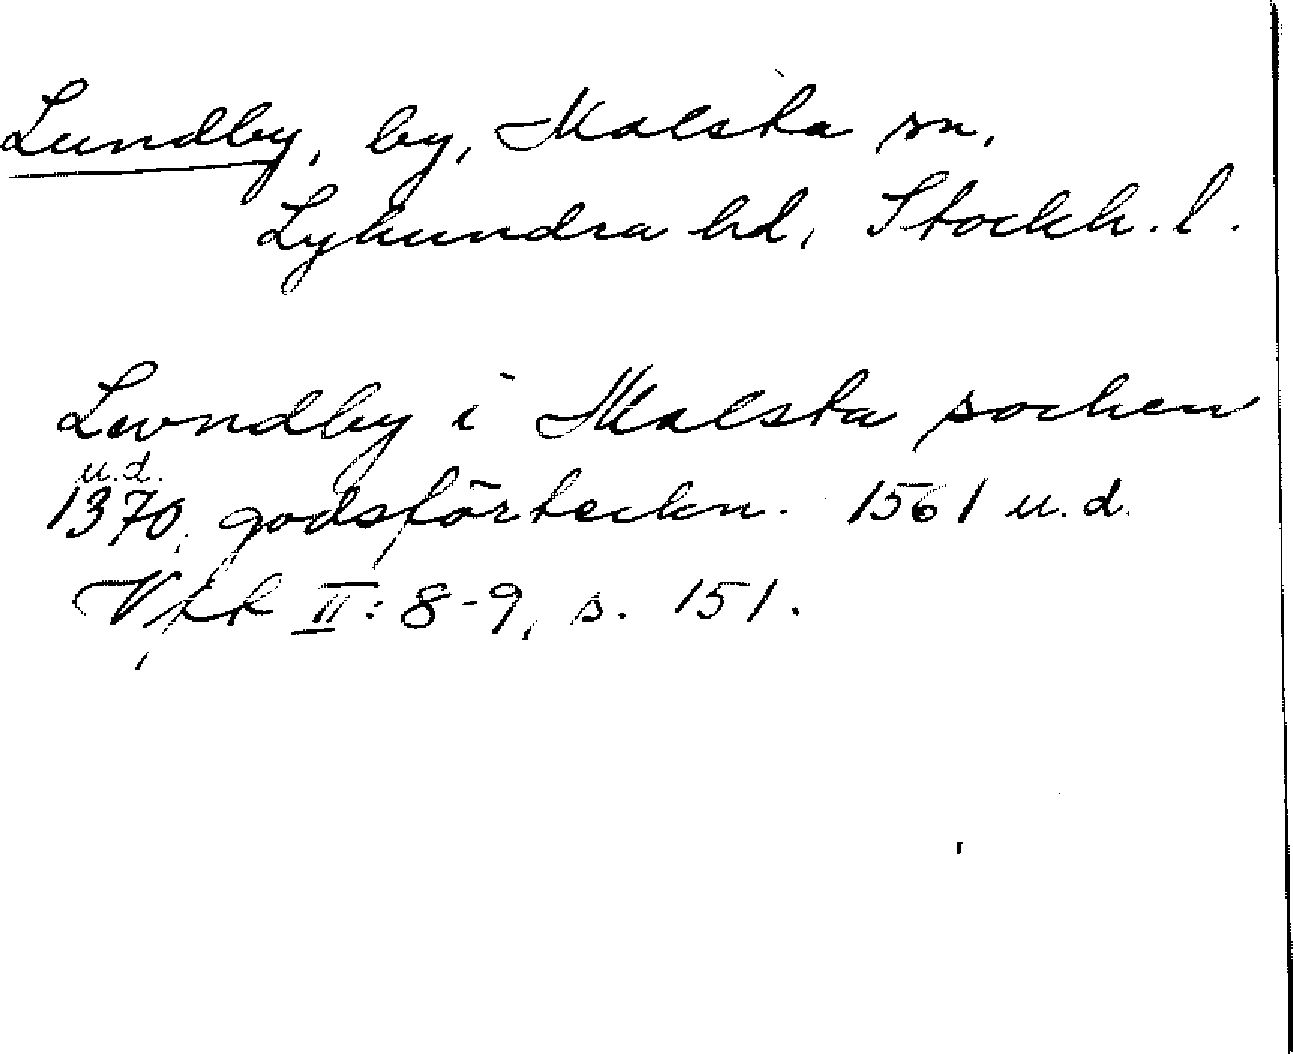 Lundby, by, Malsta sn,
Lyhundra hd, Stockh. l.
Lwndby i Malsta sochen
u.d.
1370, godsförteckn. 1561 u.d.
Vfk II: 8-9, s. 151.